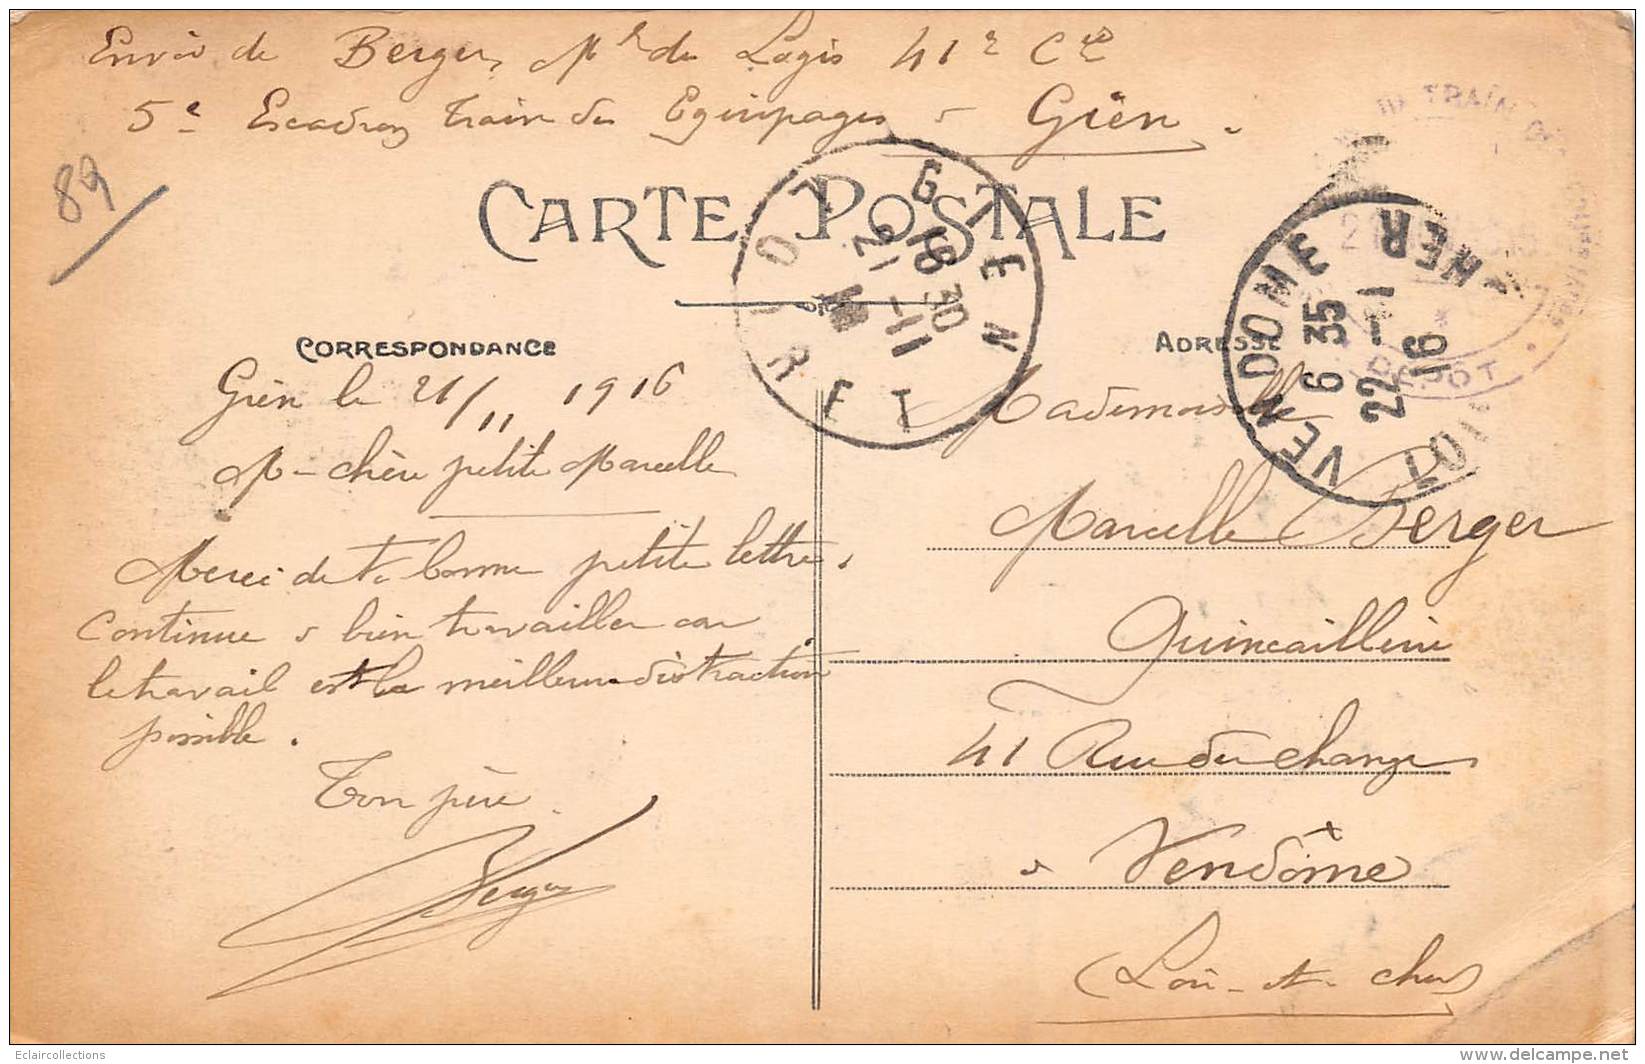 Envoi de Berger, Mal des Logis 41e Cie
5e Escadron Train des Equipages à Gien.
89
CARTE POSTALE
GIEN
16 30
21 -11
16
LOIRET
TRAIN
DEPOT
VENDOME
6 35
22 -11
16
LOIR
CHER
CORRESPONDANCE
Gien le 21/11 1916
Ma chère petite Marcelle
Merci de ta bonne petite lettre.
Continue à bien travailler car
le travail est la meilleure distraction
possible.
Ton père
Berger
ADRESSE
Mademoiselle
Marcelle Berger
Quincaillerie
41 Rue du Change
à Vendôme
(Loir-et-Cher)
Eclaircollections
www.delcampe.net